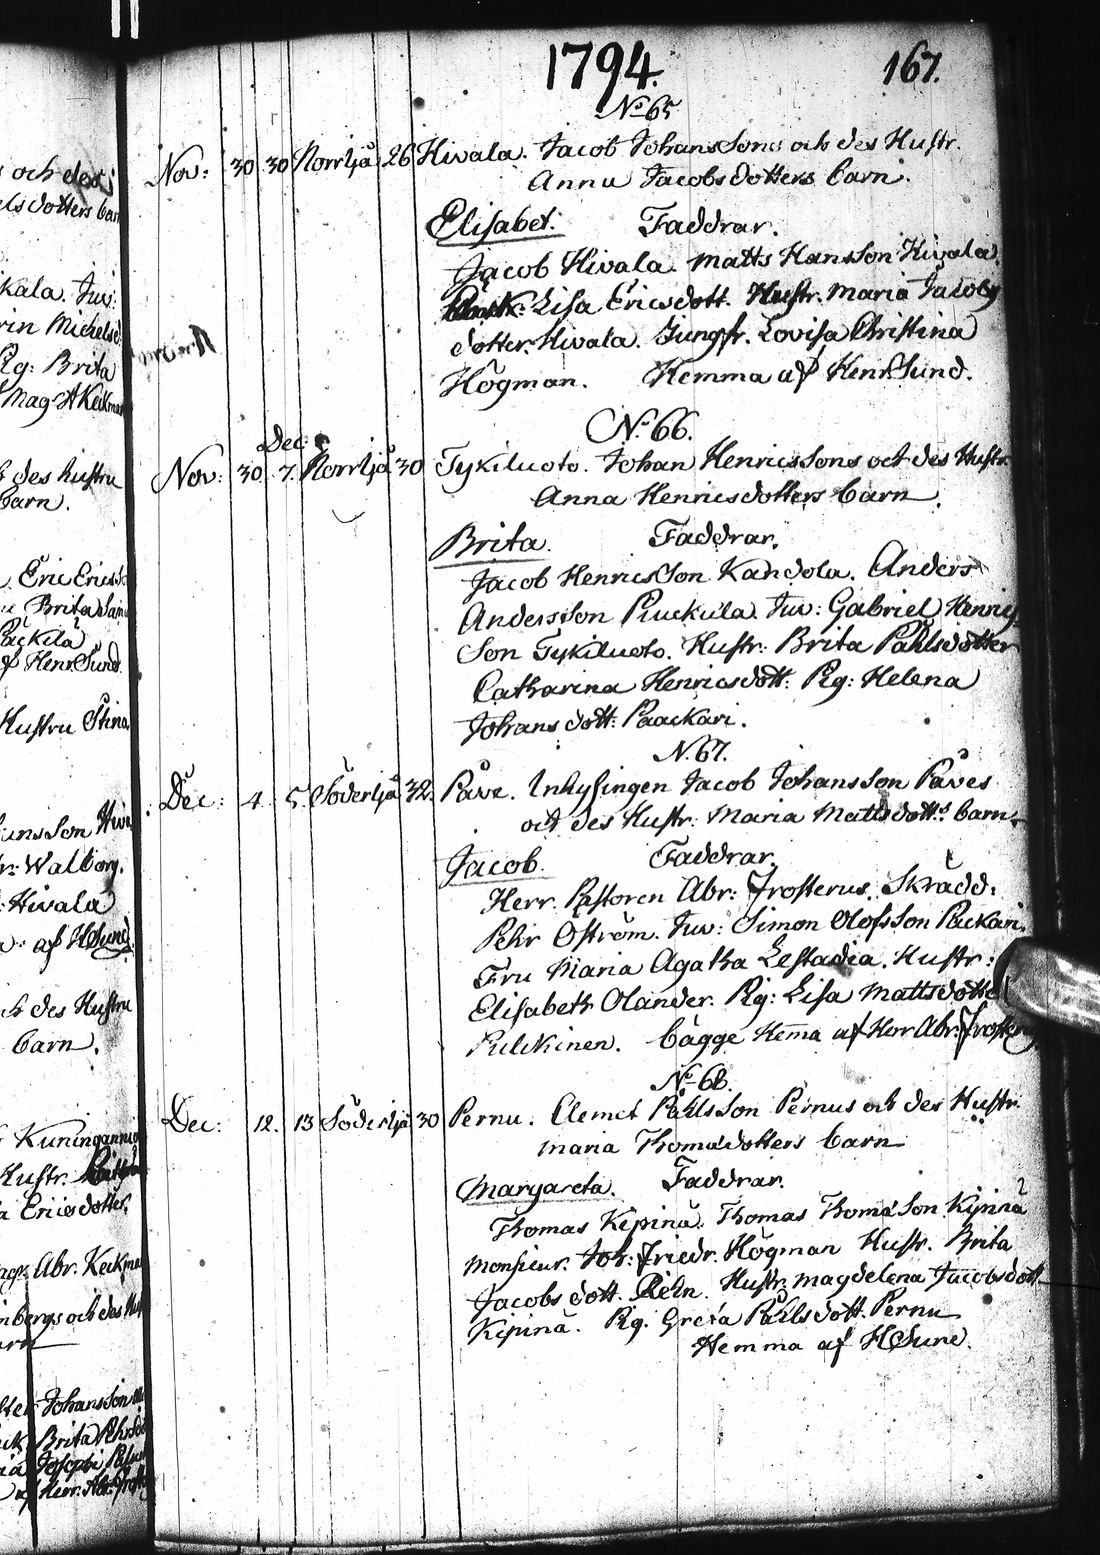 1794.
167.
No 65
Nov: 30 30 Norrljå 26 Hivala. Jacob Johanssons och des Hustr.
Anna Jacobsdotters barn.
Elisabet. Faddrar.
Jacob Hivala. Matts Hansson Hivala.
Lisa Ericsdott. Hustr. Maria Jacobs
dotter. Hivala. Jungfr. Lovisa Christina
Högman. Hemma af Henr. Sund.
No. 66.
Dec:
Nov: 30 7. Norrljå 30 Tykiluoto. Johan Henricssons och des Hustr.
Anna Henricsdotters barn.
Brita. Faddrar.
Jacob Henricsson Kandola. Anders
Andersson Piuckula. Juv: Gabriel Henrics
Son Tykiluoto. Hustr: Brita Påhlsdotter
Catharina Henricsdott: Pig: Helena
Johansdott: Paackari.
N. 67.
Dec: 4. 5. Söderljå 32. Påve. Inhysingen Jacob Johansson Påves
och des Hustr: Maria Mattsdotts barn.
Jacob. Faddrar.
Herr. Pastoren Abr: Frosterus. Skrädd:
Pehr Öström. Juv: Simon Olofsson Packari.
Fru Maria Agatha Lestadia. Hustr:
Elisabeth Olander. Pig: Lisa Mattsdotter
Pulckinen. bägge Hema af Herr Abr: Frosterus
No 68.
Dec: 12. 13 Söderljå 30 Pernu. Clemet Påhlsson Pernus och des Hustr.
Maria Thomædotters barn
Margareta. Faddrar.
Thomas Kipinä. Thomas Thomæson Kipinä
Monsieur. Joh: Friedr. Högman Hustr. Brita
Jacobsdott. Hustr. Magdelena Jacobsdott
Kipinä. Pig. Greta Påhlsdott. Pernu
Hemma af HSund.
och des
elsdotters barn
kala. Juv:
rin Michelsd
Pig: Brita
Mag. A Keckman
des hustru
barn.
Eric Ericss
Brita
Päckilä
af Henr Sund.
Hustru Stina
r: Walborg.
Hivala
af HSund.
des Hustru
barn.
Kuningannie
Hustr.
a Ericsdotter.
Abr. Keckman
Johansson
Brita Pehrsdo